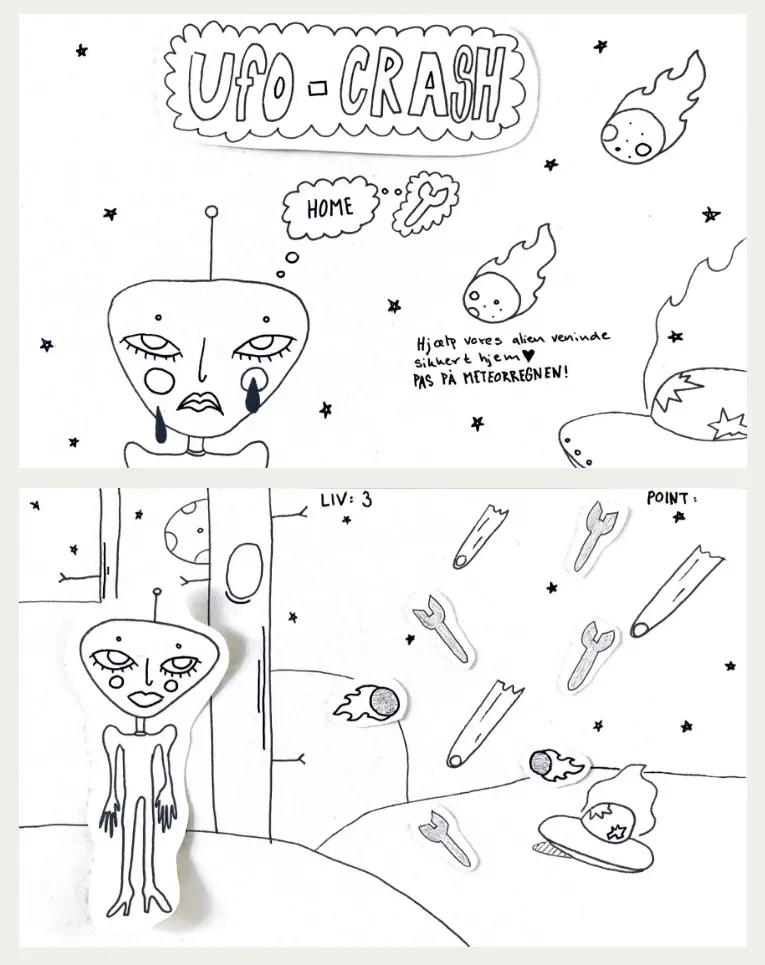 UFO - CRASH
HOME
Hjælp vores alien veninde
sikkert hjem♥
PAS PÅ METEORREGNEN!
LIV: 3
POINT: